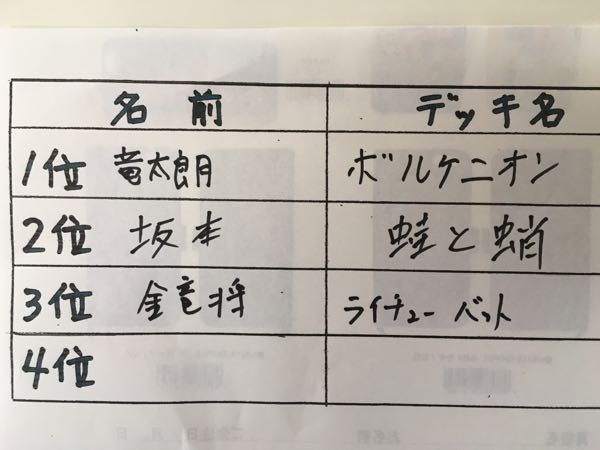 名前 デッキ名
1位 竜太朗 ボルケニオン
2位 坂本 蛙と蛸
3位 金竜将 ライチュー バット
4位